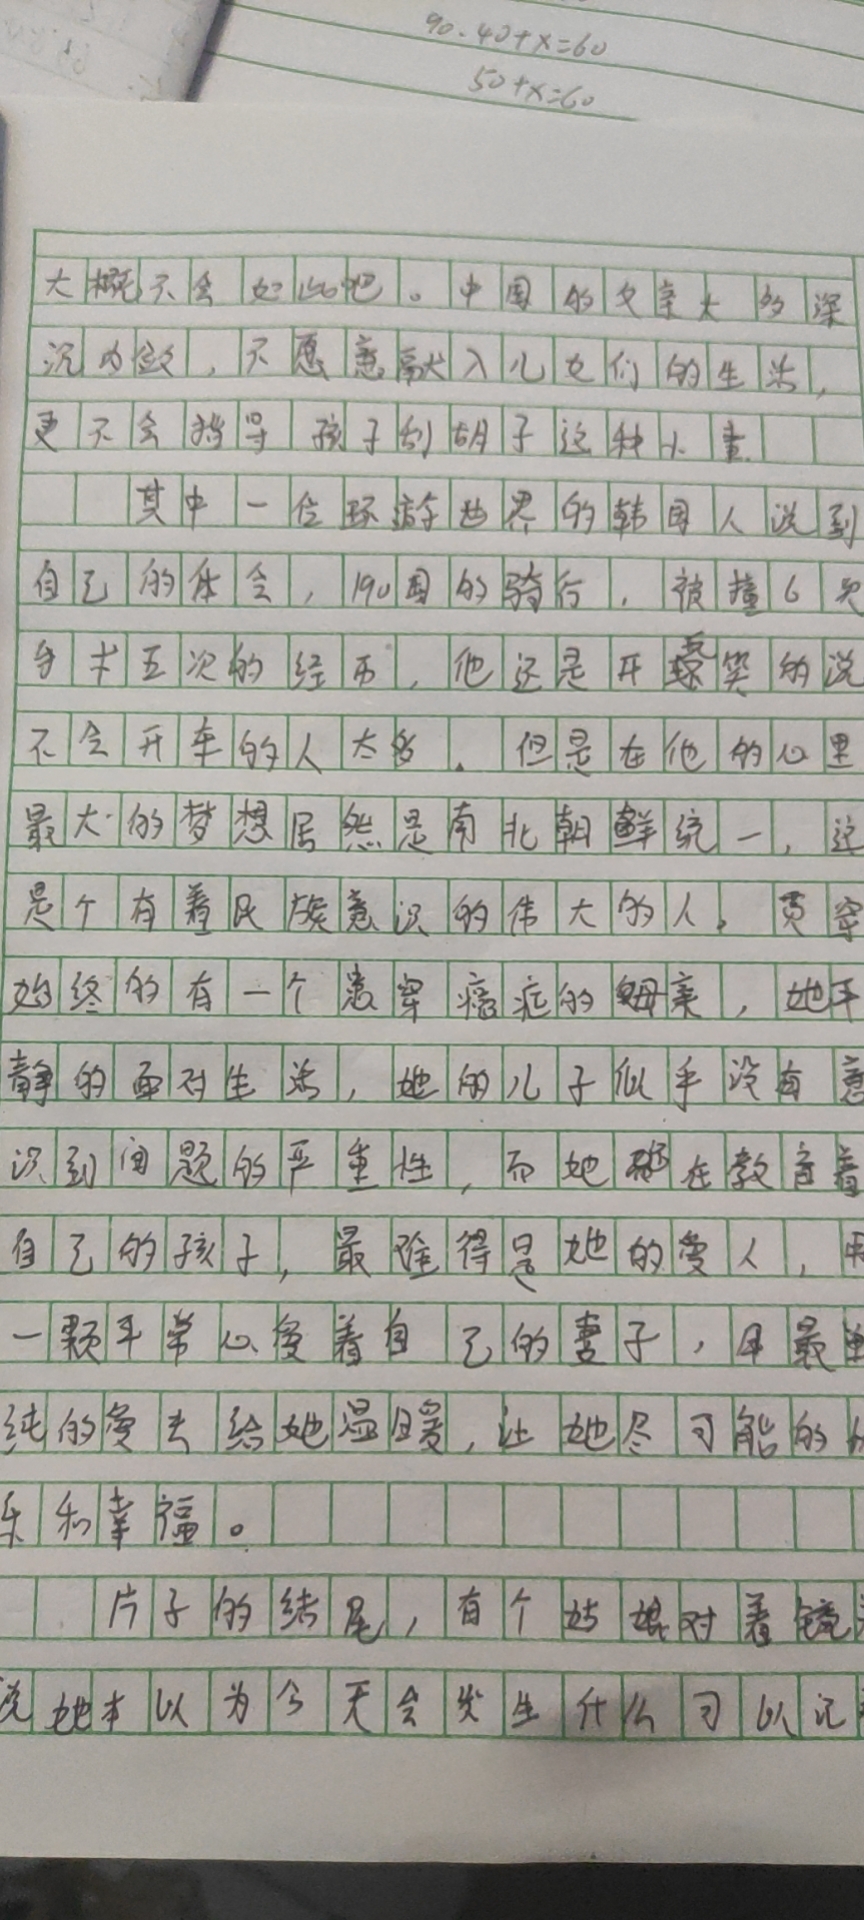 90-40+x=60
50+x=60
大概不会如此吧。中国的父亲大多深
沉内敛,不愿意献入儿女们的生活,
更不会指导孩子刮胡子这种小事.
其中一位环游世界的韩国人说到
自己的体会,190国的骑行,被撞6次
手术五次的经历,他还是开玩笑的说
不会开车的人太多.但是在他的心里
最大的梦想居然是南北朝鲜统一,这
是个有着民族意识的伟大的人。贯穿
始终的有一个患癌症的母亲,她平
静的面对生活,她的儿子似乎没有意
识到问题的严重性,而她在教育着
自己的孩子,最难得是她的爱人,用
一颗平常心爱着自己的妻子,用最单
纯的爱去给她温暖,让她尽可能的
乐和幸福。
片子的结尾,有个姑娘对着镜
说她本以为今天会发生什么可以记